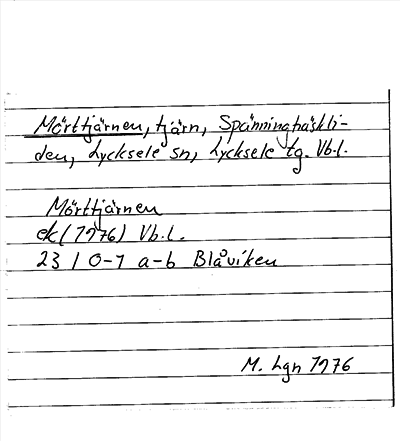 Mörttjärnen, tjärn, Spänningträskli-
den, Lycksele sn, Lycksele tg. Vb.l.
Mörttjärnen
ek(1976) Vb.l.
23 I 0-1 a-b Blåviken
M. Lgn 1976